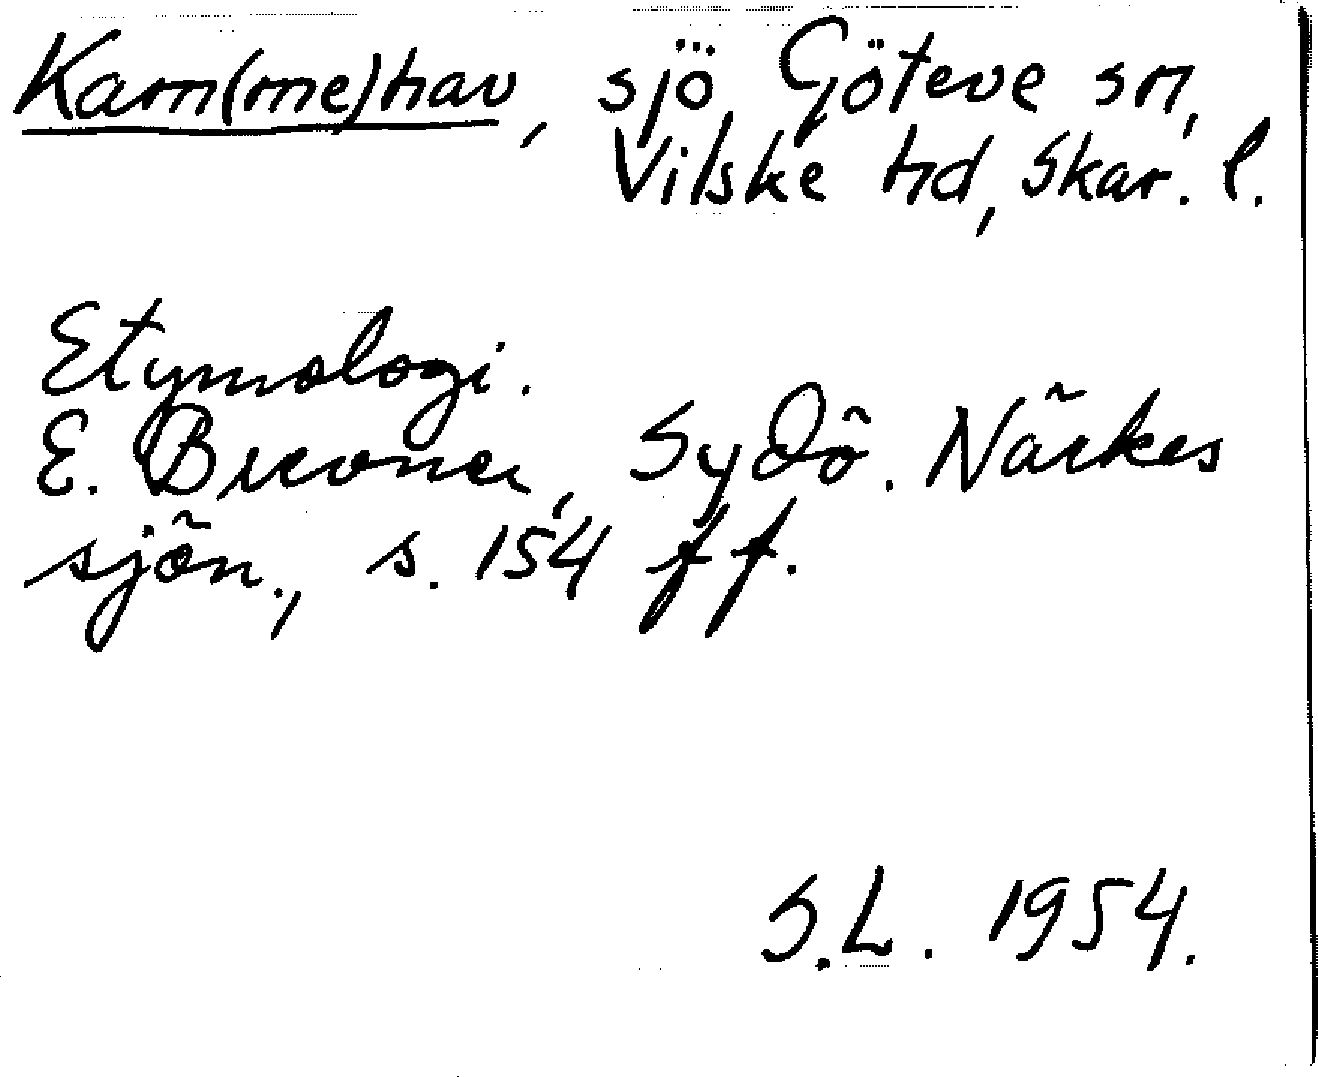 Kam(me)hav, sjö, Göteve sn,
Vilske hd, Skar. l.
Etymologi.
E. Brevner, Sydö. Närkes
sjön., s. 154 ff.
S.L. 1954.